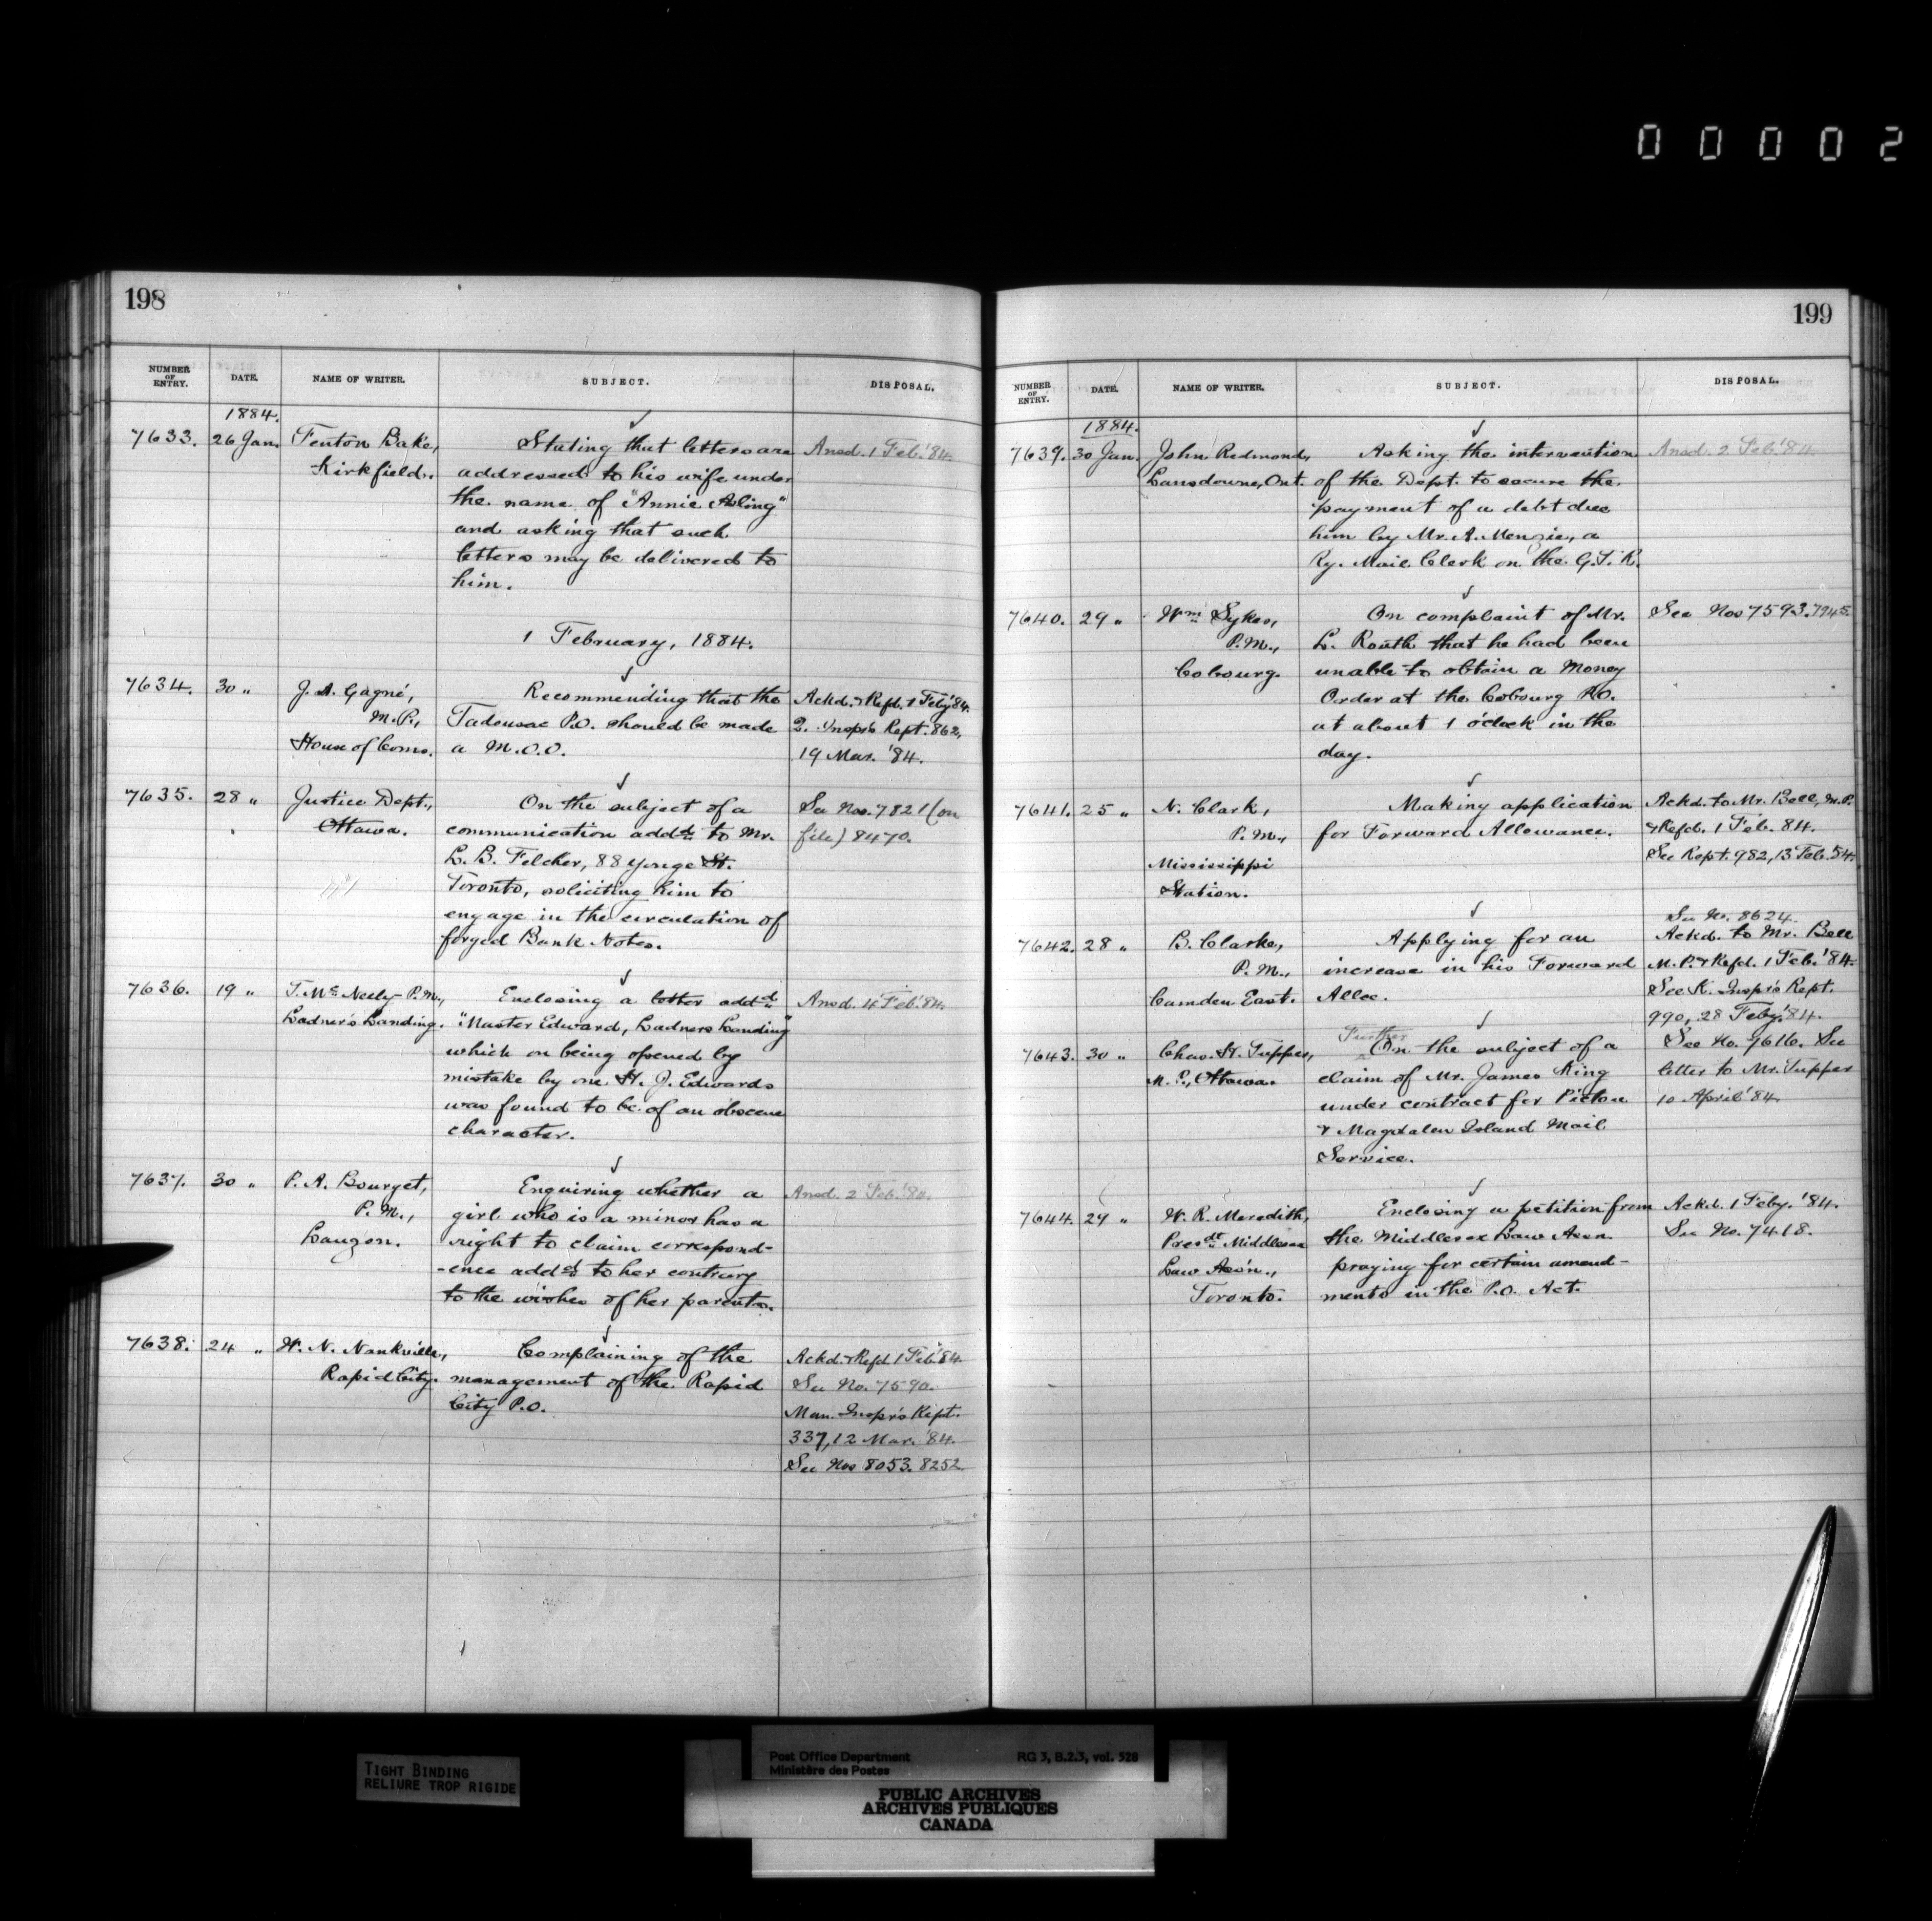 00002
198
NUMBER OF ENTRY. DATE. NAME OF WRITER. SUBJECT. DISPOSAL.
1884.
7633. 26 Jan. Fenton Bake, Stating that letters are Ansd. 1 Feb. '84.
Kirkfield. addressed to his wife under
the name of "Annie Asling"
and asking that such
letters may be delivered to
him.
1 February, 1884.
7634. 30 " J. A. Gagné, Recommending that the Ackd. & Refd. 1 Feby '84.
M.P., Tadousac P.O. should be made Q. Inspr's Rept. 862,
House of Coms. a M.O.O. 19 Mar. '84.
7635. 28 " Justice Dept., On the subject of a See Nos. 7821 (on
Ottawa. communication addd. to Mr. file) 8470.
L. B. Felcher, 88 Yonge St.
Toronto, soliciting him to
engage in the circulation of
forged Bank Notes.
7636. 19 " T. McNeely P.M., Enclosing a letter addd. Ansd. 4 Feb. '84.
Ladner's Landing. "Master Edward, Ladners Landing"
which on being opened by
mistake by one H. J. Edwards
was found to be of an obscene
character.
7637. 30 " P. A. Bourget, Enquiring whether a Ansd. 2 Feb.
P.M., girl who is a minor has a
Lauzon. right to claim correspond-
-ence addd. to her contrary
to the wishes of her parents.
7638. 24 " W. N. Nankville, Complaining of the Ackd & Refd 1 Feb. '84.
Rapid City. management of the Rapid See No. 7590.
City P.O. Man. Inspr's Rept.
337, 12 Mar. '84.
See Nos 8053. 8252
199
NUMBER OF ENTRY. DATE. NAME OF WRITER. SUBJECT. DISPOSAL.
1884.
7639. 30 Jan. John Redmond, Asking the intervention Ansd. 2 Feb. '84.
Lansdowne, Ont. of the Dept. to secure the
payment of a debt due
him by Mr. A. Menzie, a
Ry. Mail Clerk on the G.T.R.
7640. 29 " Wm Sykes, On complaint of Mr. See Nos 7593. 7745.
P.M., L. Routh that he had been
Cobourg. unable to obtain a Money
Order at the Cobourg P.O.
at about 1 o'clock in the
day.
7641. 25 " N. Clark, Making application Ackd. to Mr. Bell, M.P.
P.M., for Forward Allowance. & Refd. 1 Feb. 84.
Mississippi See Rept. 982, 13 Feb. 84.
Station.
See No. 8624.
7642. 28 " B. Clarke, Applying for an Ackd. to Mr. Bell
P.M., increase in his Forward M.P. & Refd. 1 Feb. '84.
Camden East. Allce. See K. Inspr's Rept.
990, 28 Feby. '84.
Further
7643. 30 " Chas. H. Tupper, On the subject of a See No. 7616. See
M.P., Ottawa. claim of Mr. James King letter to Mr. Tupper
under contract for Pictou 10 April '84.
& Magdalen Island Mail
Service.
7644. 29 " W. R. Meredith, Enclosing a petition from Ackd. 1 Feby. '84.
Presdt. Middlesex the Middlesex Law Assn See No. 7418.
Law Ass'n., praying for certain amend-
Toronto. ments in the P.O. Act.
TIGHT BINDING
RELIURE TROP RIGIDE
Post Office Department RG 3, B.2.3, vol. 528
Ministère des Postes
PUBLIC ARCHIVES
ARCHIVES PUBLIQUES
CANADA